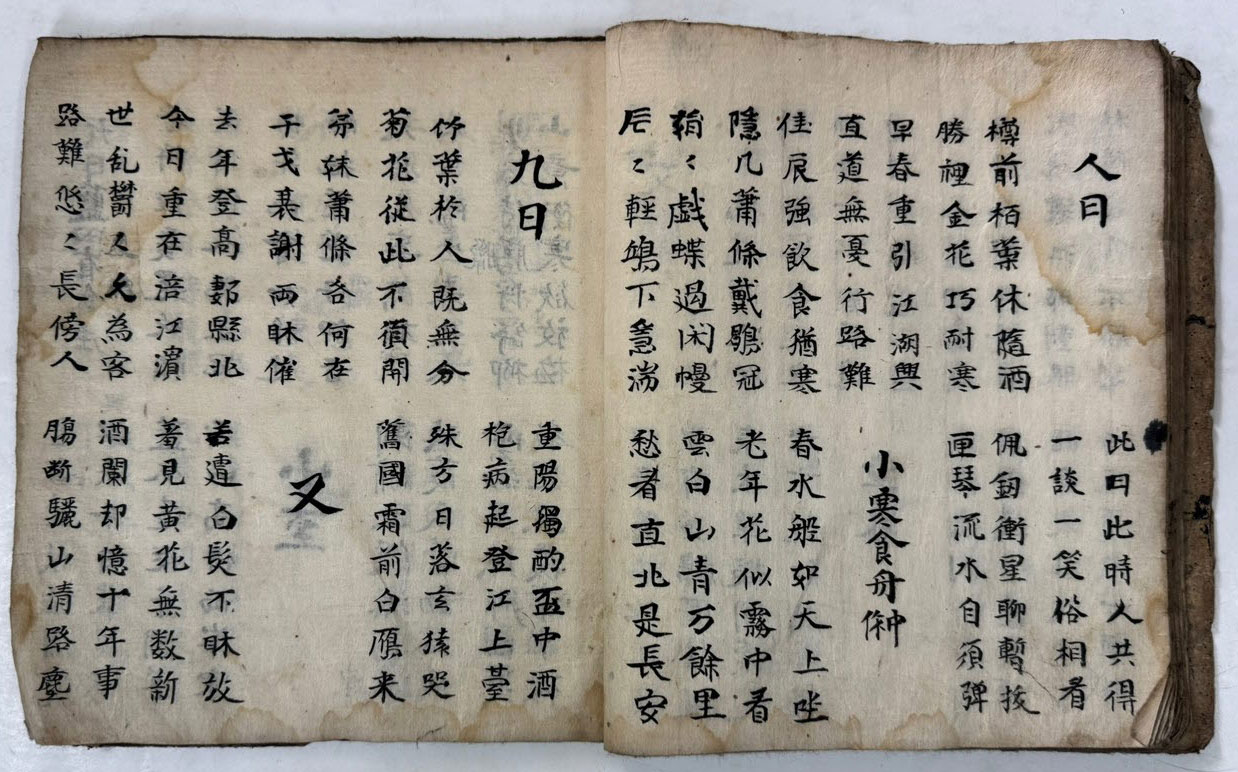 人日
此日此時人共得
一談一笑俗相看
樽前栢葉休隨酒
勝裡金花巧耐寒
佩劔衝星聊暫拔
匣琴流水自須彈
早春重引江湖興
直道無憂行路難
小寒食舟
佳辰強飲食猶寒
隱几蕭條戴鶡冠
春水船如天上坐
老年花似霧中看
娟〻戯蝶過闲幔
片〻輕鴻下急湍
雲白山青万餘里
愁看直北是長安
九日
重陽獨酌盃中酒
抱病起登江上臺
竹葉於人既無分
菊花從此不須開
殊方日落玄猿哭
舊國霜前白鴈来
弟妹蕭條各何在
干戈衰謝兩相催
又
去年登高郪縣北
今日重在涪江濱
苦遭白髮不相放
羞見黄花無数新
世乱鬱〻久為客
路難悠〻長傍人
酒闌却憶十年事
腸断驪山清路塵